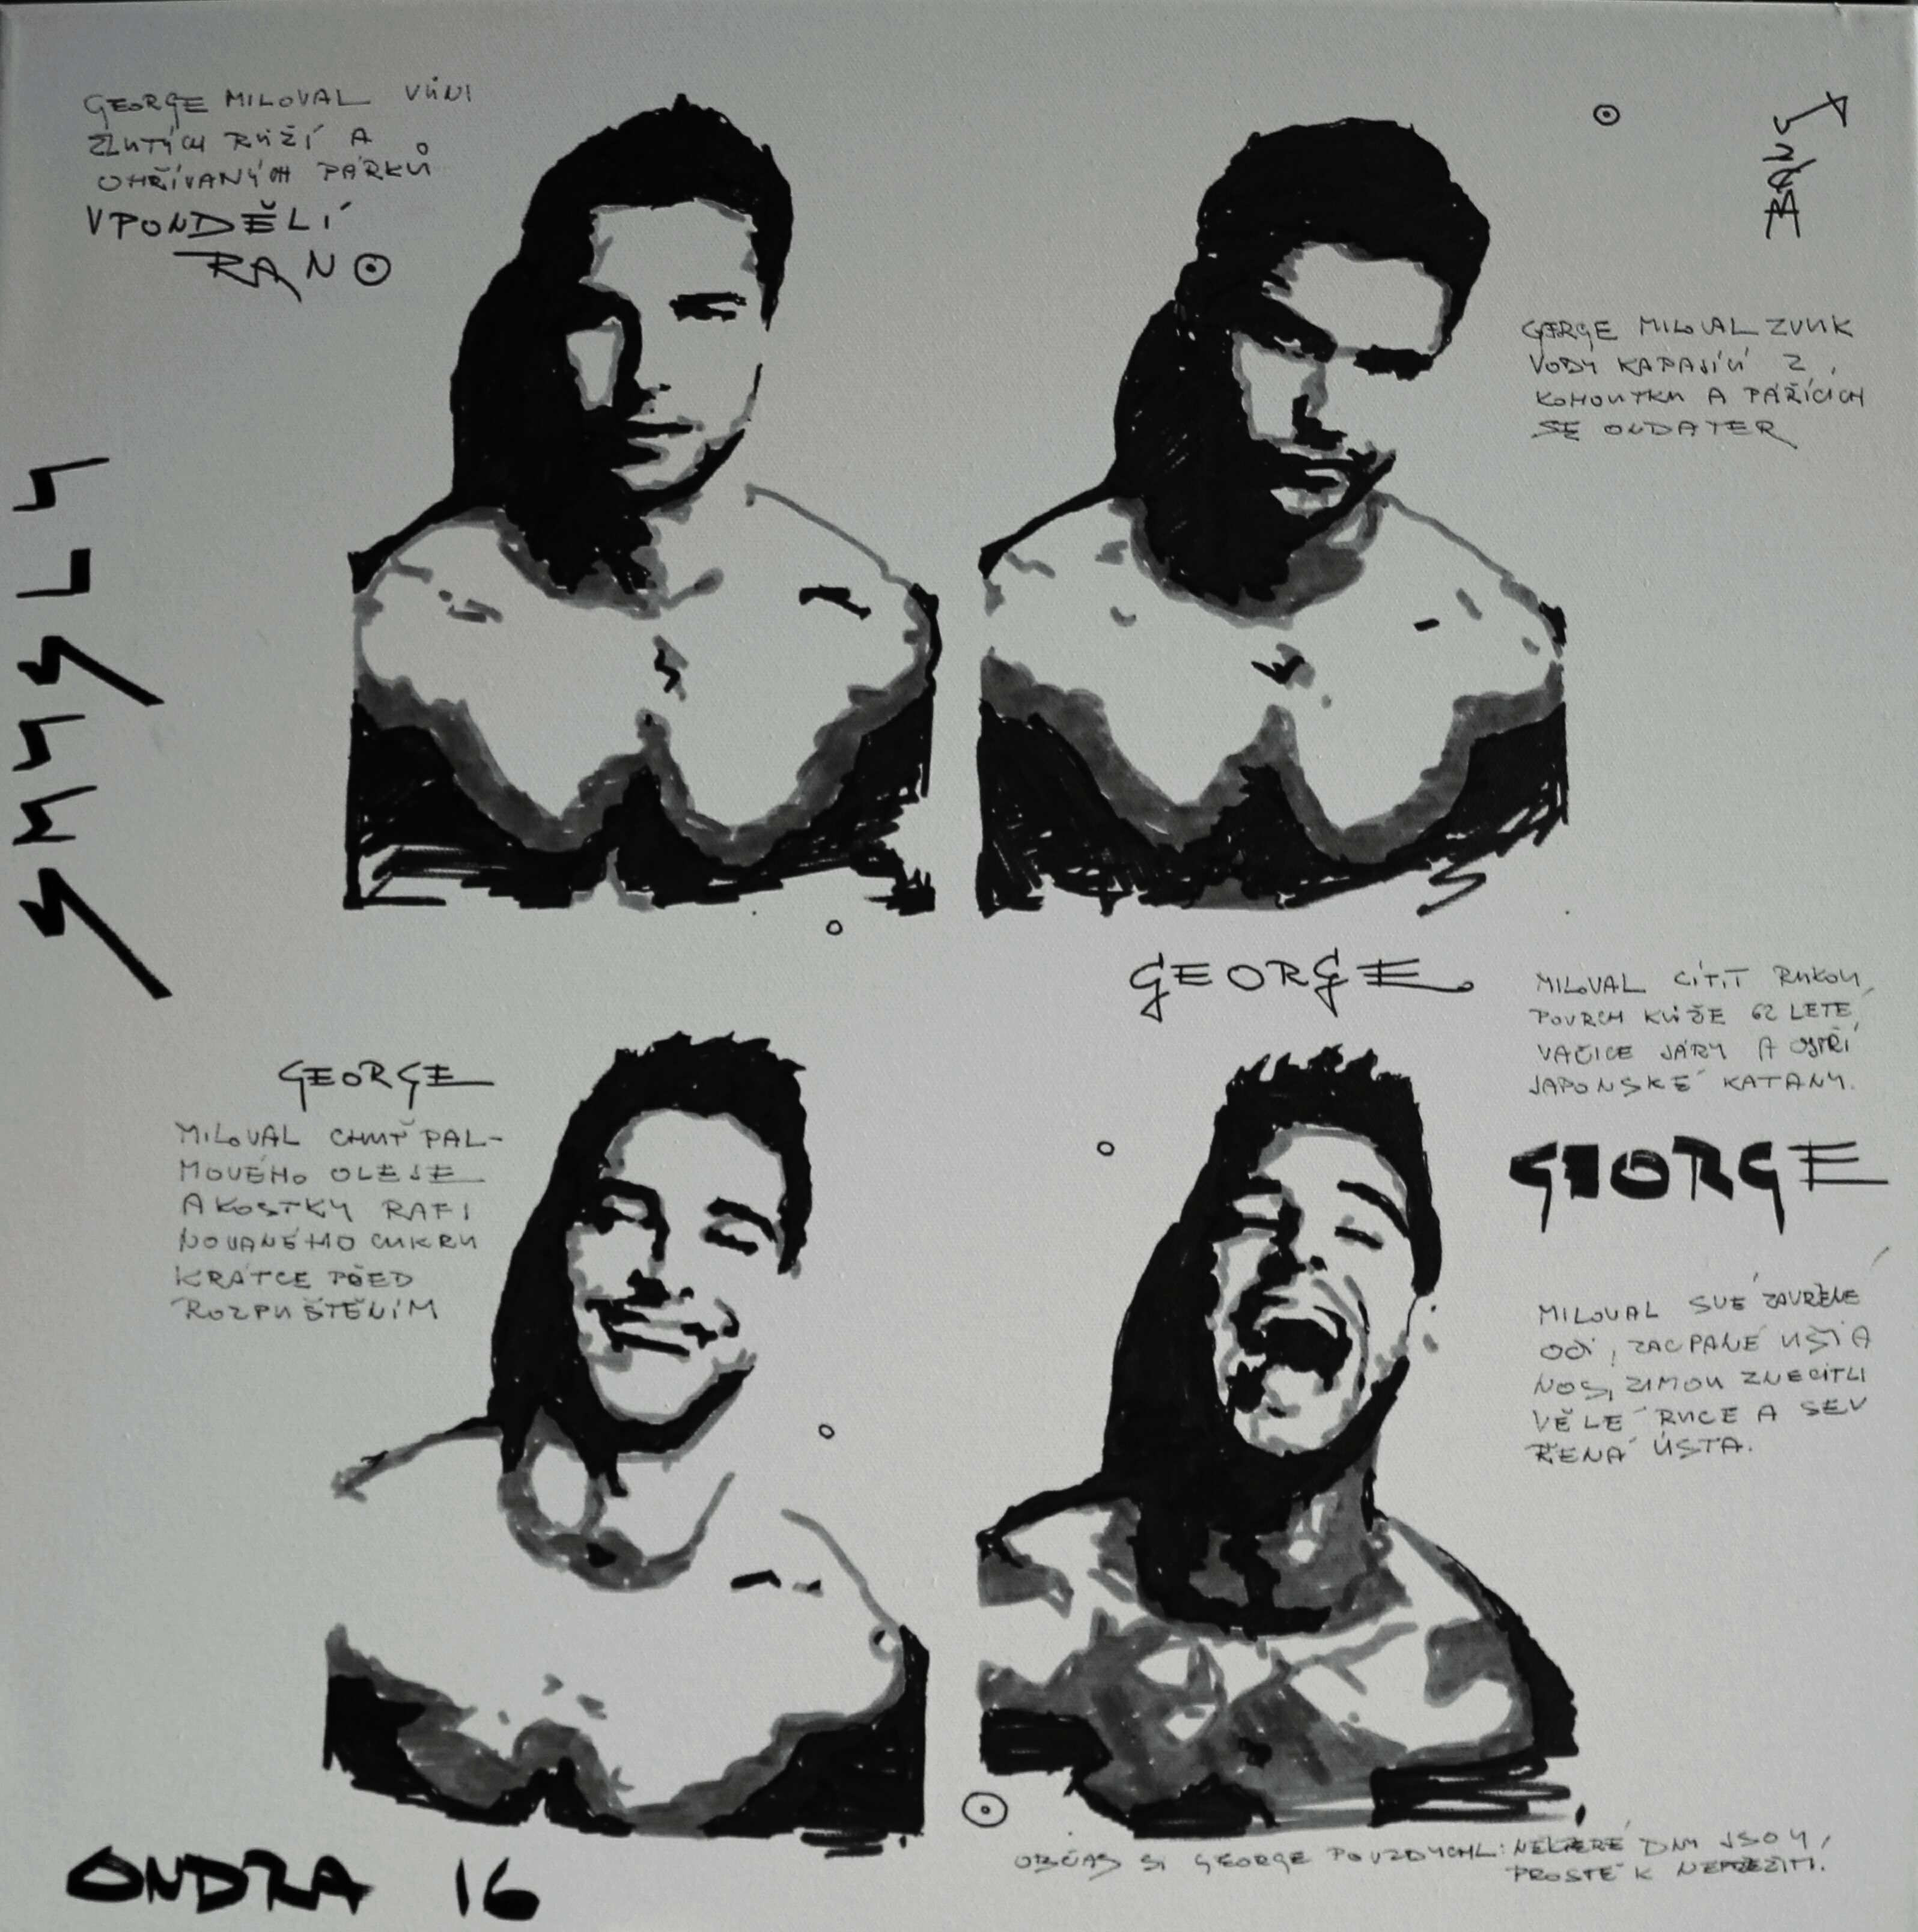 GEORGE MILOVAL VŮNI
ŽLUTÝCH RŮŽÍ A
OHŘÍVANÝCH PÁRKŮ
V PONDĚLÍ
RANO
GEORGE MILOVAL ZVUK
VODY KAPAJÍCÍ Z
KOHOUTKU A PÁŘÍCÍCH
SE ONDATER
SMYSLY
GEORGE
MILOVAL CÍTIT RUKOU
POVRCH KŮŽE 62 LETÉ
VAČICE JÁRY A OSTŘÍ
JAPONSKÉ KATANY.
GEORGE
MILOVAL CHUŤ PAL-
MOVÉHO OLEJE
A KOSTKY RAFI
NOVANÉHO CUKRU
KRÁTCE PŘED
ROZPUŠTĚNÍM
GEORGE
MILOVAL SVÉ ZAVŘENÉ
OČI, ZACPANÉ UŠI A
NOS, ZIMOU ZNECITLI
VĚLÉ RUCE A SEV
ŘENÁ ÚSTA.
OBČAS SI GEORGE POVZDYCHL: NĚKTERÉ DNY JSOU,
PROSTĚ K NEPŘEŽITÍ.
ONDRA 16